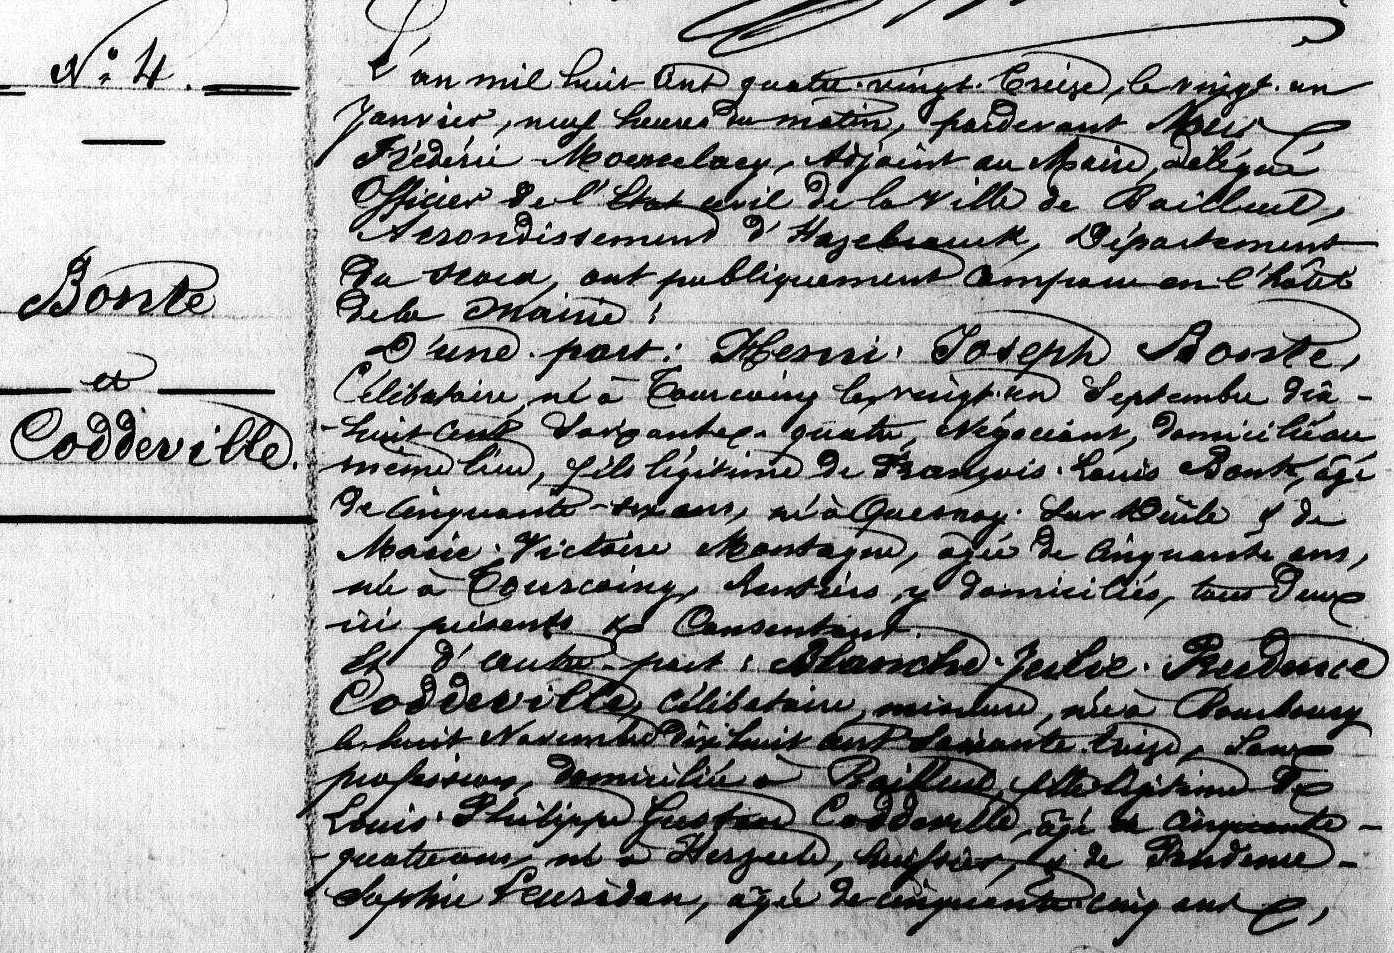 N° 4.
Bonte
et
Coddeville.
L'an mil huit cent quatre-vingt-treize, le vingt-un
Janvier, neuf heures du matin, pardevant Nous
Frédéric Adjoint au Maire, délégué
Officier de l'Etat civil de la Ville de Bailleul,
Arrondissement d'Hazebrouck, Département
du Nord, ont publiquement comparu en l'hôtel
de la Mairie :
D'une part : Henri Joseph Bonte,
Célibataire, né à Tourcoing le vingt-un Septembre dix-
huit cent soixante-quatre, Négociant, domicilié au
même lieu, fils légitime de François Louis Bonte, âgé
de cinquante- ans, né à Quesnoy-Sur-Deûle & de
Marie Victoire Montagne, âgée de cinquante ans,
née à Tourcoing, Rentiers, y domiciliés, tous deux
ici présents et Consentant.
Et d'autre part : Blanche Julie Prudence
Coddeville, célibataire, mineure, née à Bourbourg
le huit Novembre dix huit cent soixante treize, Sans
profession, domiciliée à Bailleul, fille légitime de
Louis Philippe Gustave Coddeville, âgé de cinquante-
quatre ans, né à Herzeele, huissier, & de Prudence
Sophie âgée de cinquante cinq ans,